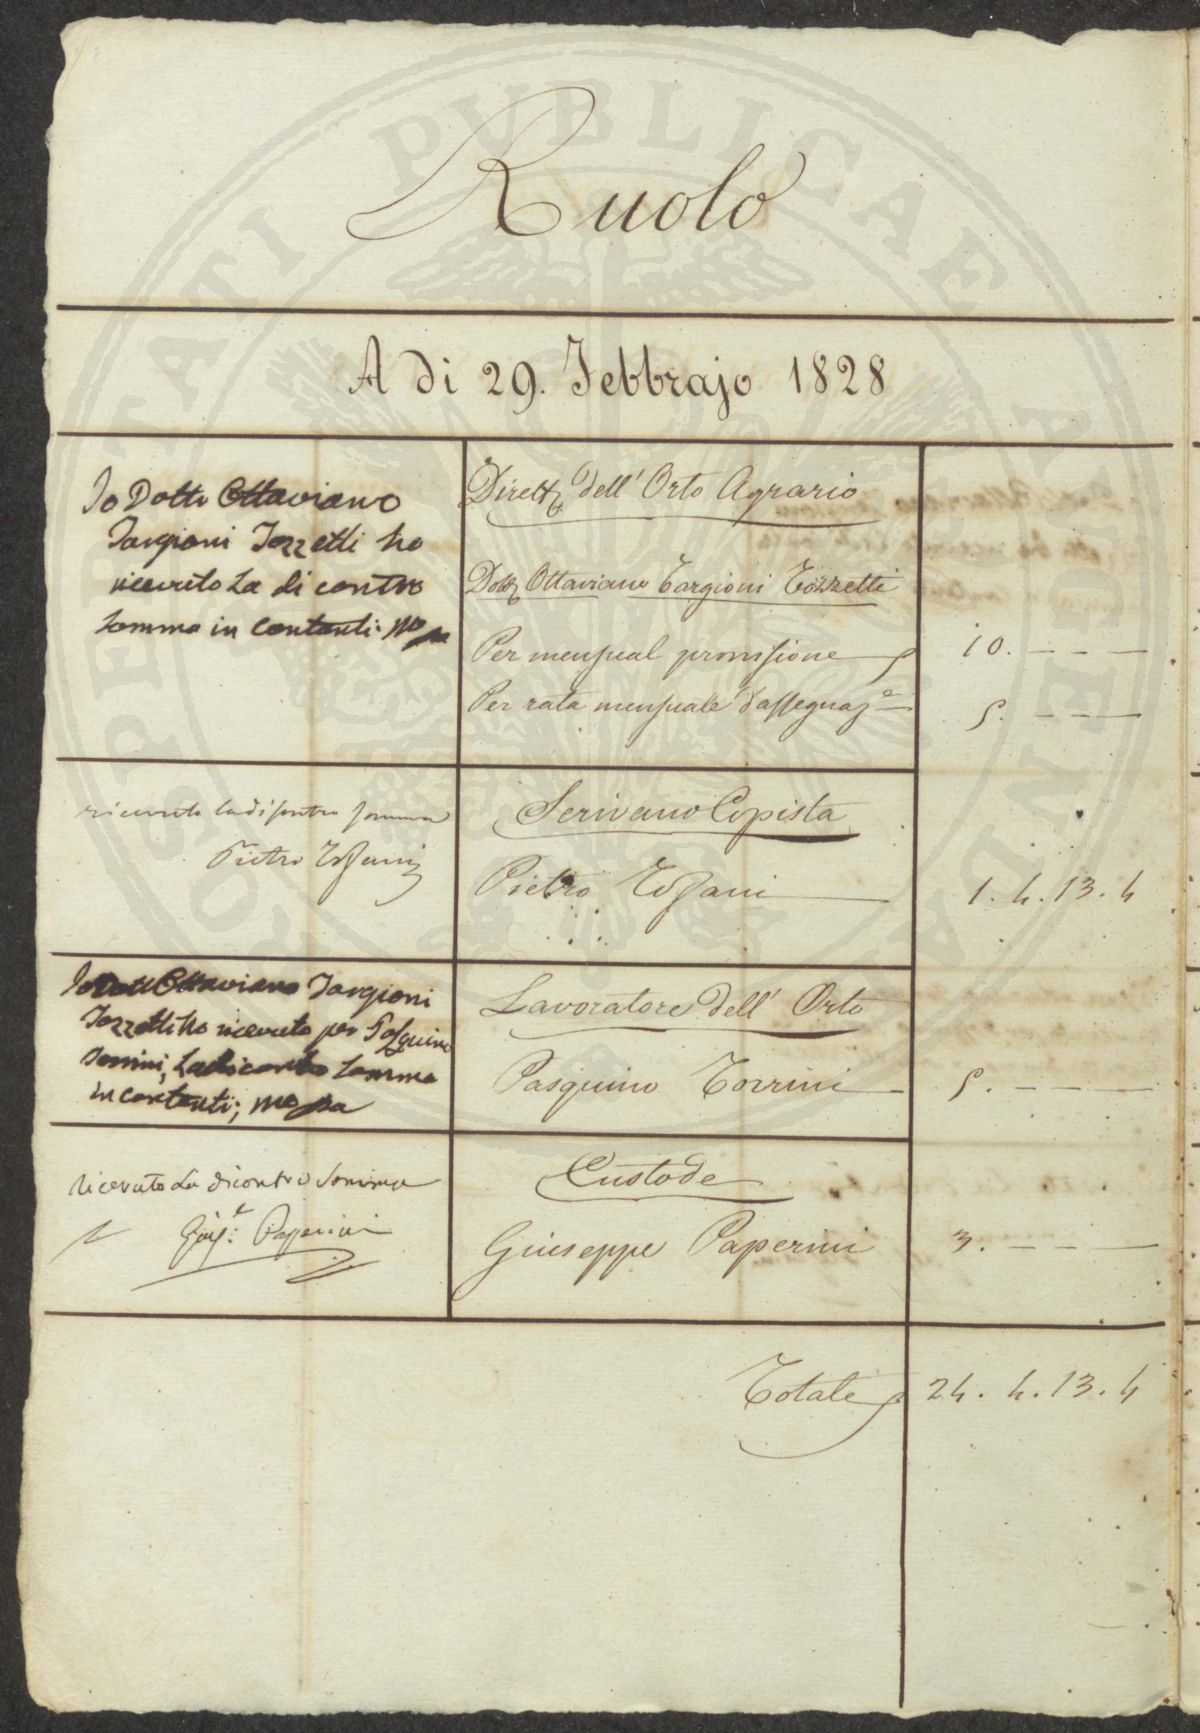 Ruolo
A di 29. Febbrajo 1828
Io Dottr Ottaviano
Targioni Tozzetti ho
ricevuto La di contro
Somma in Contanti: mo pa
Dirett.e dell' Orto Agrario
Dott.r Ottaviano Targioni Tozzetti
Per mensual provvisione 10. - - -
Per rata mensuale d'assegnaz.e 5. - - -
ricevuto la di contro somma
Pietro
Scrivano Copista
Pietro 1. 4. 13. 4
Io Dott Ottaviano Targioni
Tozzetti ho ricevuto per Pasquino
Torrini, La di contro Somma
in Contanti; mo pa
Lavoratore dell' Orto
Pasquino Torrini 5. - - -
ricevuto La di contro Somma
Giu.e Paperini
Custode
Giuseppe Paperini 3. - - -
Totale 24. 4. 13. 4
SOSPERITATI PUBLICAE AUGENDAE